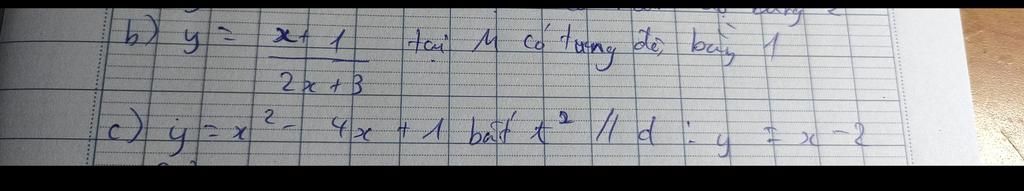 b) y = x + 1 / 2x + 3 tại M có tung độ bằng 1
c) y = x² - 4x + 1 biết t² // d : y = x - 2